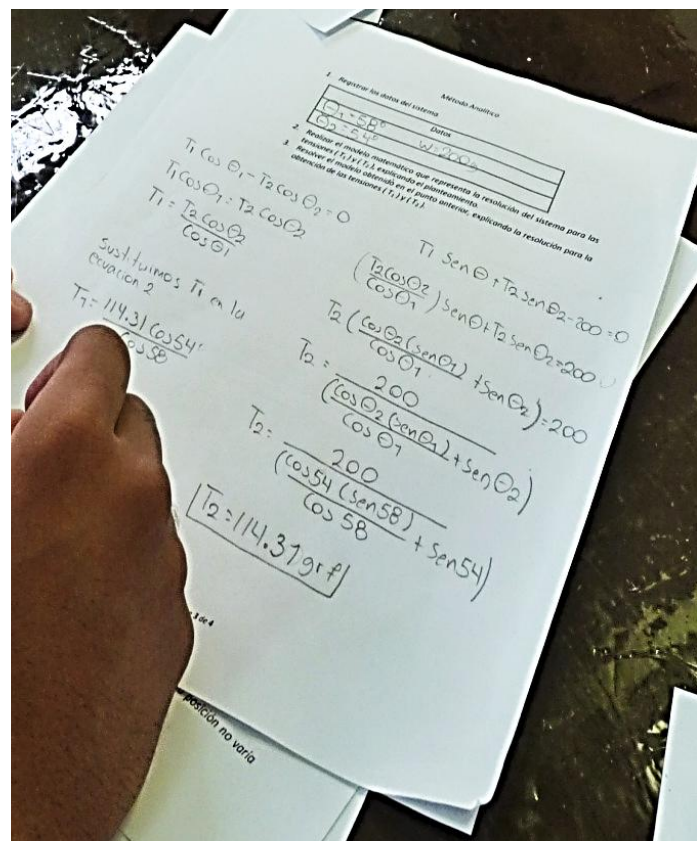 Método Analítico
1. Registrar los datos del sistema
Datos
Θ1 = 58°
Θ2 = 54°
W=200g
2. Realizar el modelo matemático que representa la resolución del sistema para las tensiones (T1) y (T2), explicando el planteamiento.
3. Resolver el modelo obtenido en el punto anterior, explicando la resolución para la obtención de las tensiones (T1) y (T2).
T1 Cos Θ1 - T2 Cos Θ2 = 0
T1 Cos Θ1 = T2 Cos Θ2
T1 = T2 Cos Θ2 / Cos Θ1
Sustituimos T1 en la
ecuacion 2
T1 = 114.31 Cos 54° / Cos 58
T1 Sen Θ + T2 Sen Θ2 - 200 = 0
(T2 Cos Θ2 / Cos Θ1) Sen Θ + T2 Sen Θ2 = 200
T2 (Cos Θ2 (Sen Θ1) / Cos Θ1 + Sen Θ2) = 200
T2 = 200 / (Cos Θ2 (Sen Θ1) / Cos Θ1 + Sen Θ2)
T2 = 200 / (Cos 54 (Sen 58) / Cos 58 + Sen 54)
T2 = 114.31 grf
3 de 4
posición no varía